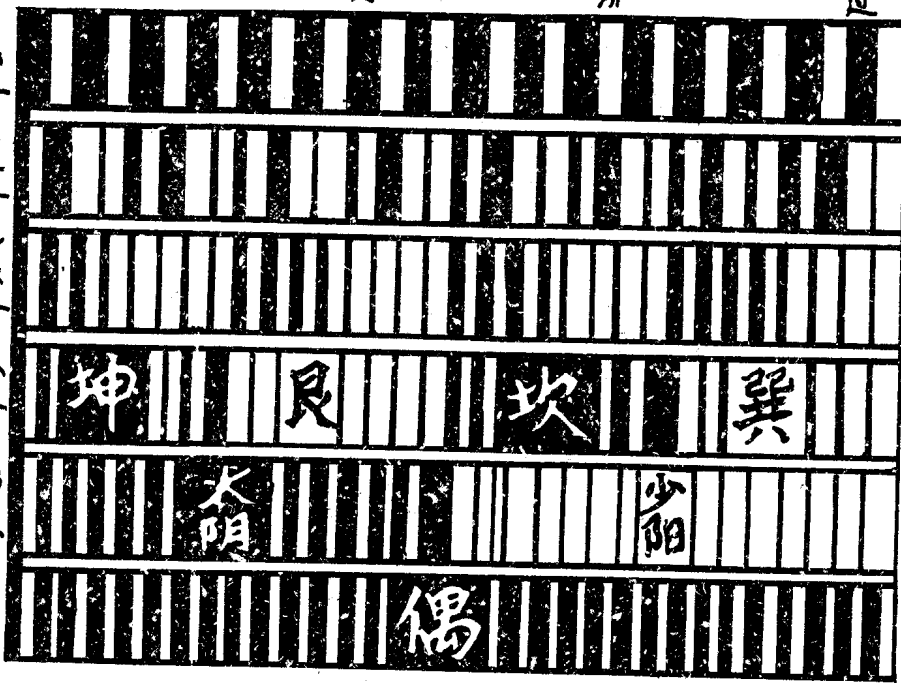 坤 艮 坎 巽
太阴 少阳
偶